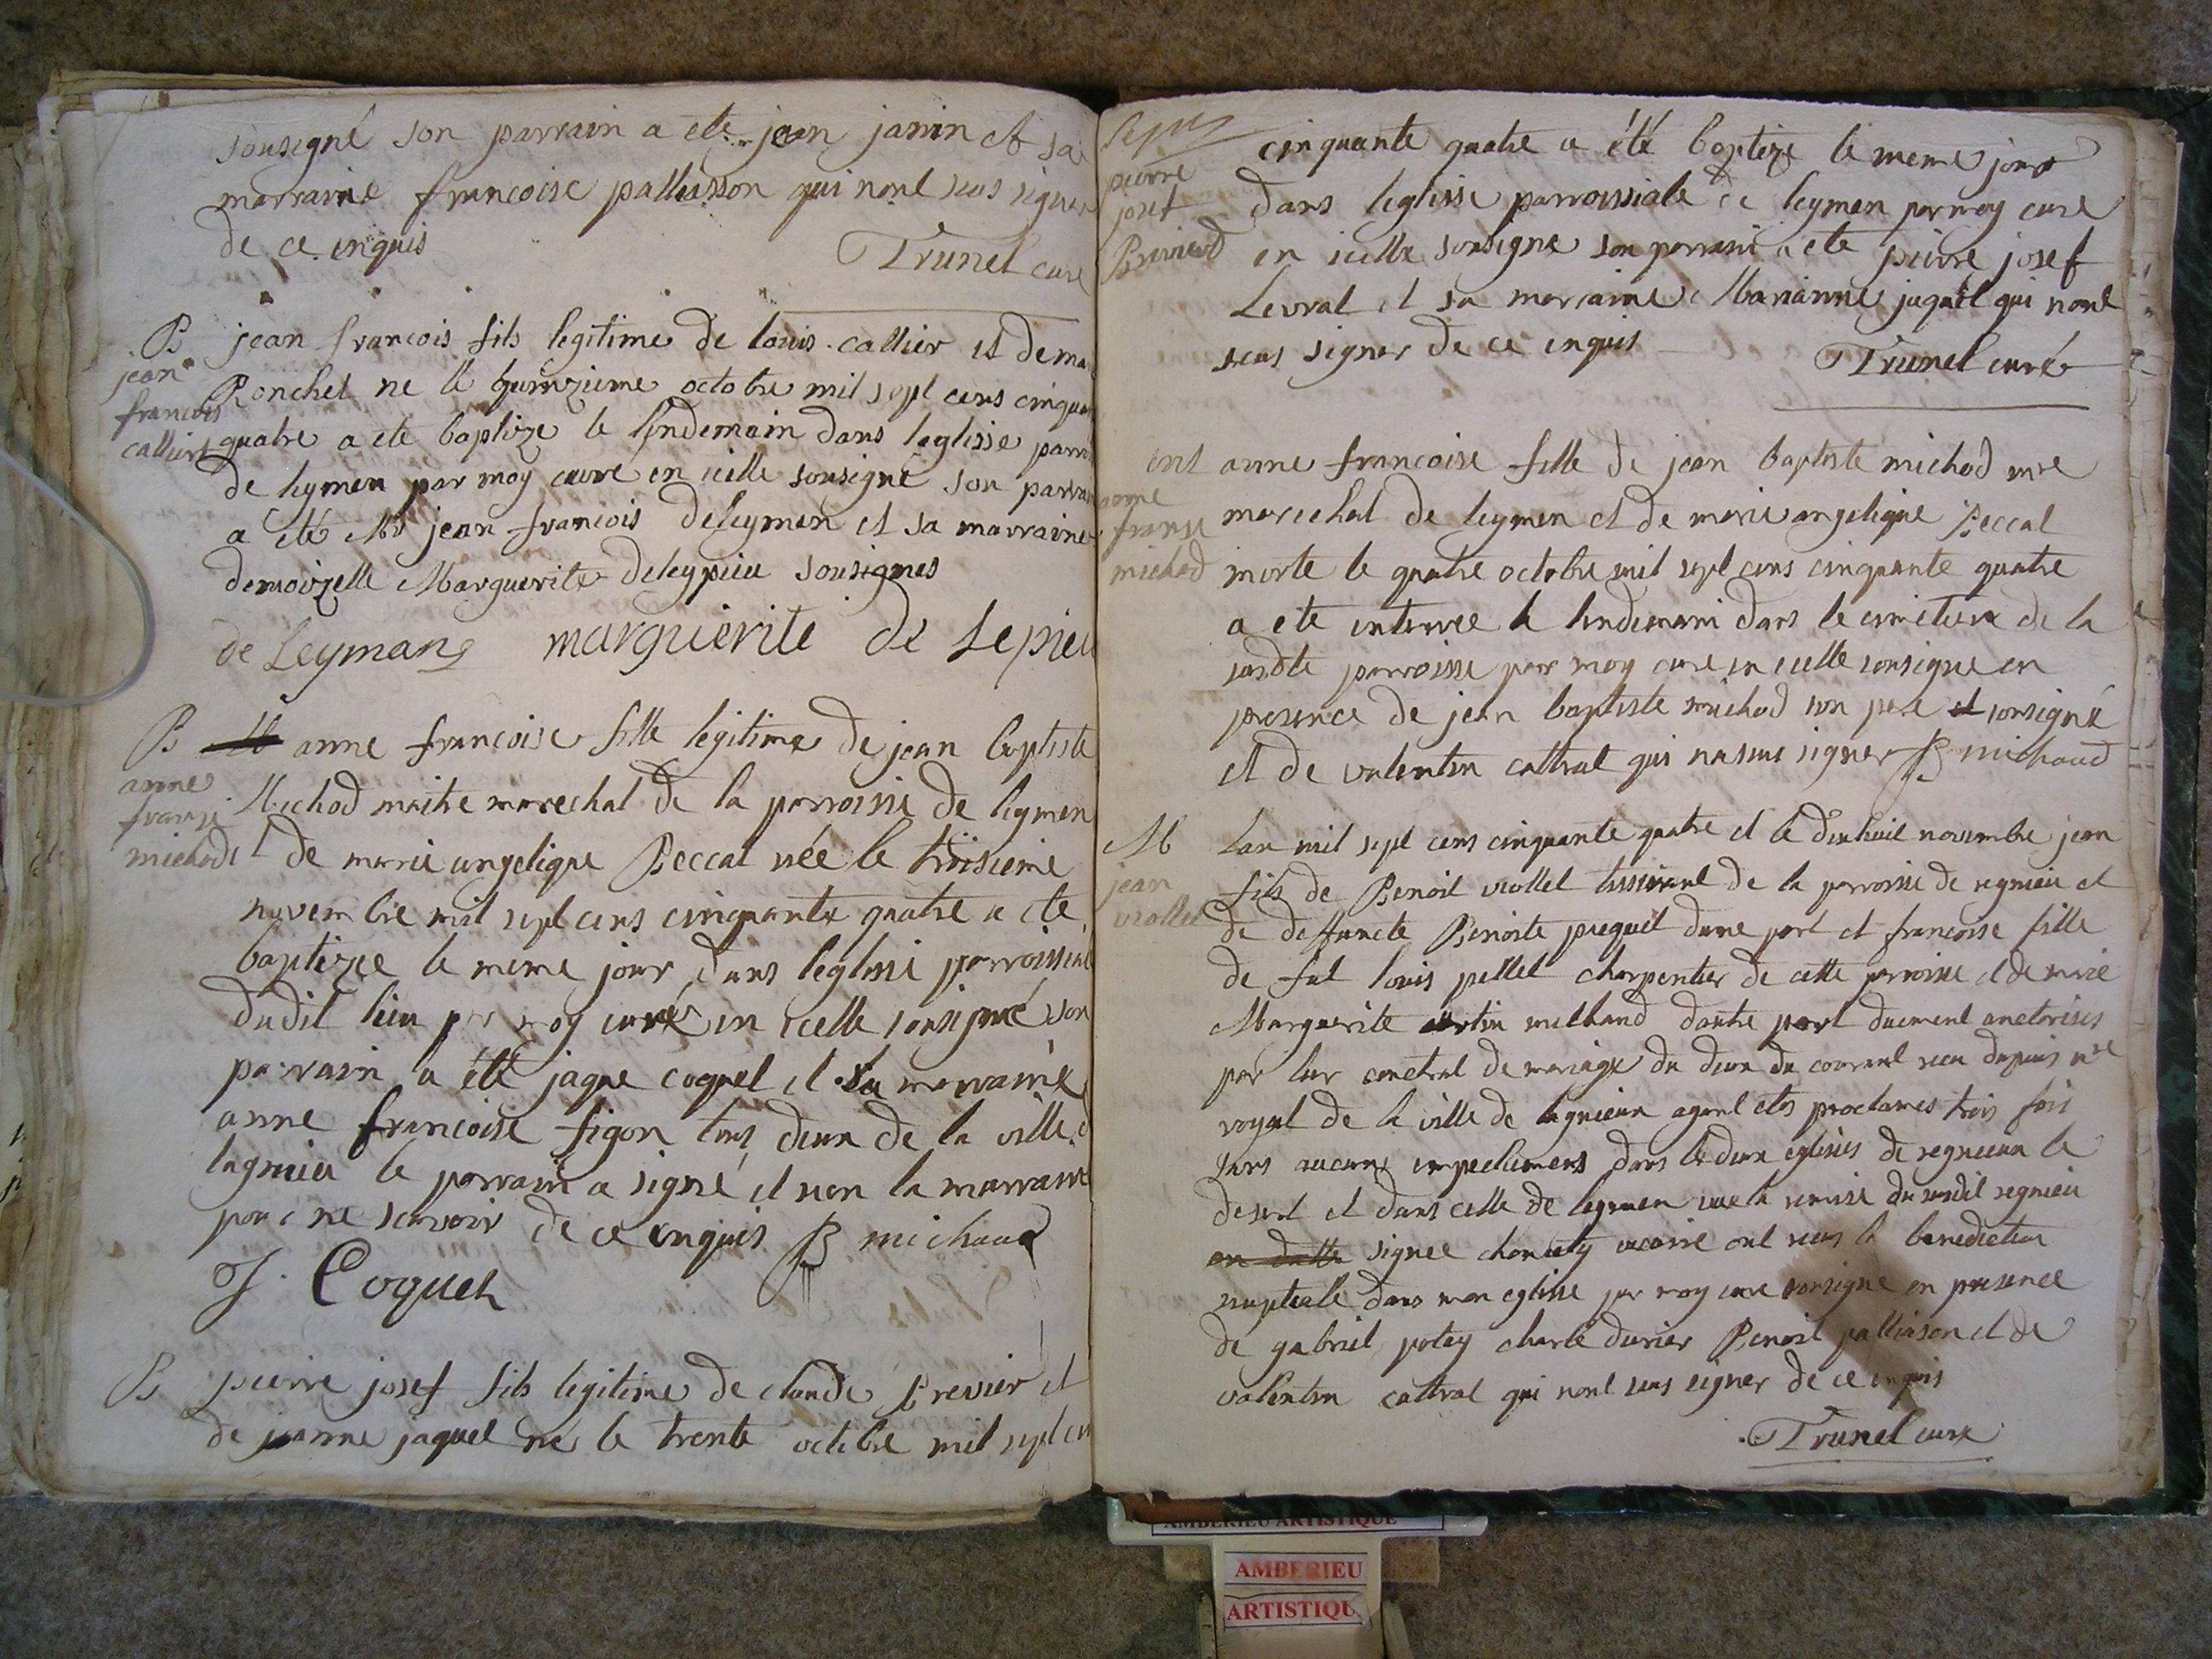 sousigné son parrain a ete jean janin et sa
marraine francoise palluisson qui nont scus signer
de ce enquis
Trunel curé
B
jean
francois
callier
jean francois fils legitime de louis callier et de ma
Ronchet ne le quinzieme octobre mil sept cens cinquan
quatre a ete baptize le lindemain dans leglisse parro
de leymen par moy curé en icelle sousigné son parrain
a été Mr jean francois deleymen et sa marraine
demoizelle Marguerite deleypieu sousignes
de Leymans marguerite de Lepieu
B
anne
franse
michod
anne francoise fille legitime de jean baptiste
Michod maitre marechal de la parroisse de leymen
et de marie angelique Beccat née le troisieme
novembre mil sept cens cinquante quatre a ete
baptizee le meme jour dans leglisse parroissial
dudit lieu par moy curé en icelle sousigné son
parrain a été jaque coquet et sa marraine
anne francoise figon tous deux de la ville d
lagnieu le parrain a signé et non la marraine
pour ne scavoir de ce enquis JB michaud
J. Coquet
B
pierre josef fils legitime de claude Brevier et
de jeanne jaquet né le trente octobre mil sept cen
pierre
joset
cinquante quatre a été baptize le meme jour
dans leglisse parroissiale de leymen par moy curé
en icelle sousigne son parrain a ete pierre josef
Levrat et sa marraine Marianne jaquet qui nont
scus signer de ce enquis
Trunel curé
ent
anne
franse
michod
anne francoise fille de jean baptiste michod mre
marechal de leymen et de marie angelique Beccat
morte le quatre octobre mil sept cens cinquante quatre
a ete enterree le lindemain dans le cimetiere de la
susdte parroisse par moy curé en icelle sousigne en
presence de jean baptiste michod son pere et sousigné
et de valentin cattrat qui na scus signer JB michaud
M
jean
viollet
Lan mil sept cens cinquante quatre et le dixhuit novembre jean
fils de Benoit viollet tisserant de la parroisse de regnieu et
de deffuncte Benoite puquet dune part et francoise fille
de fut louis pellet charpentier de cette parroisse et de marie
Marguerite milliand dautre part duement auctorises
par leur contrat de mariage du deux du courant recu dupuis nre
royal de la ville de lagnieux ayant etes proclames trois fois
sans aucuns empechemens dans le deux eglises de regnieux le
desert et dans celle de leymen vue la remise du susdit regnieu
en datte signee vicaire ont recus la benediction
nuptiale dans mon eglisse par moy curé sousigne en presence
de gabriel potey charle durier Benoit palluison et de
valentin cattrat qui nont scus signer de ce enquis
Trunel curé
AMBERIEU ARTISTIQUE
AMBERIEU
ARTISTIQU